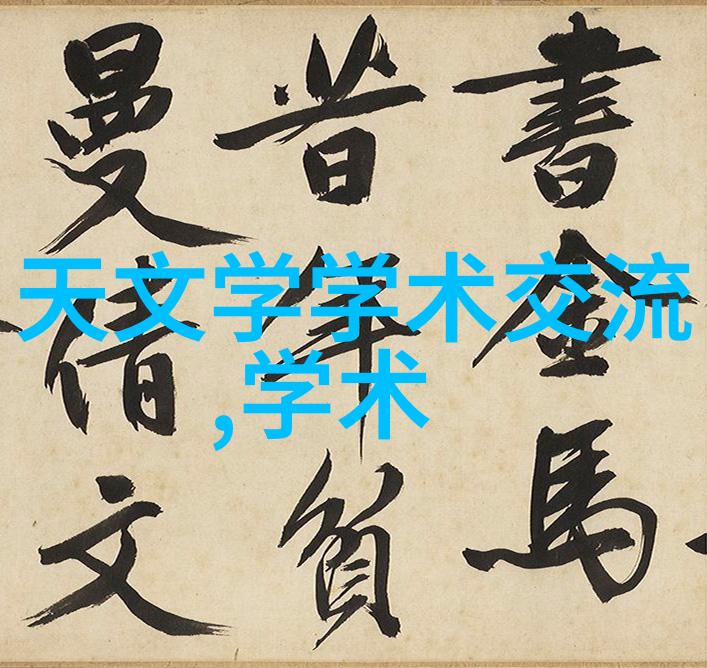 天文学学术交流
,学术
書金馬
昔年負
曼倩文